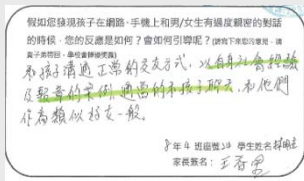 假如您發現孩子在網路、手機上和男/女生有過度親密的對話
的時候，您的反應是如何？會如何引導呢？
和孩子溝通正常的交友方式，以自身社會經驗
及報章的案例，適當的和孩子聊天，和他們
作為類似好友一般。
8年4班座號 學生姓名
家長簽名：王